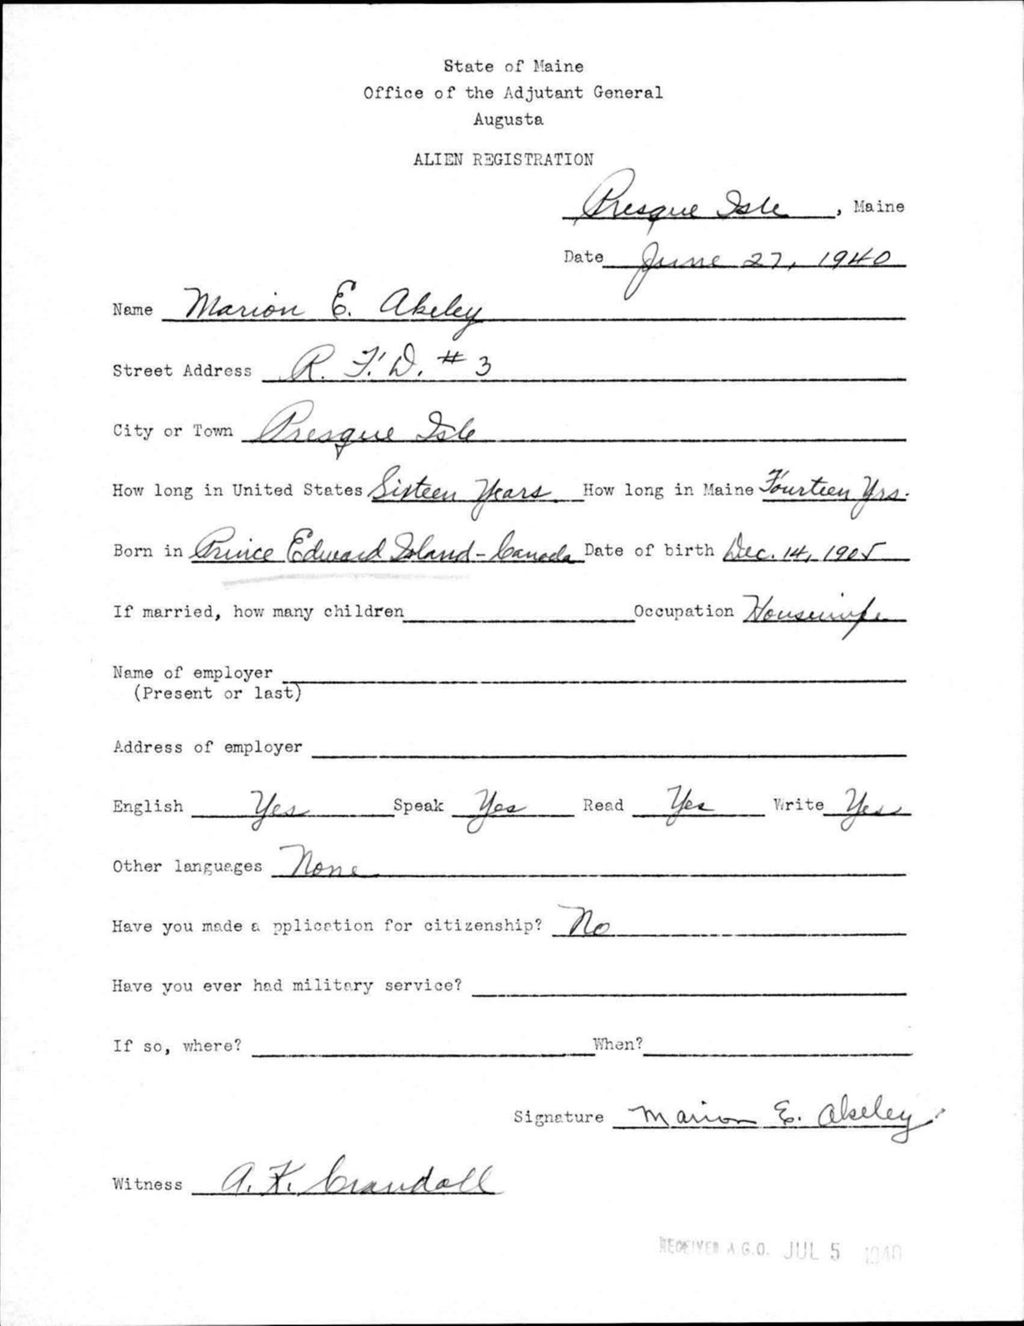 State of Maine
Office of the Adjutant General
Augusta
ALIEN REGISTRATION
Presque Isle, Maine
Date June 27, 1940
Name Marion E. Akeley
Street Address R. F. D. # 3
City or Town Presque Isle
How long in United States Sixteen Years How long in Maine Fourteen Yrs.
Born in Prince Edward Island - Canada Date of birth Dec. 14, 1905
If married, how many children Occupation Housewife
Name of employer
(Present or last)
Address of employer
English Yes Speak Yes Read Yes Write Yes
Other languages None
Have you made a pplication for citizenship? No
Have you ever had military service?
If so, where? When?
Signature Marion E. Akeley
Witness A. K. Crandall
RECEIVED A.G.O. JUL 5 1940